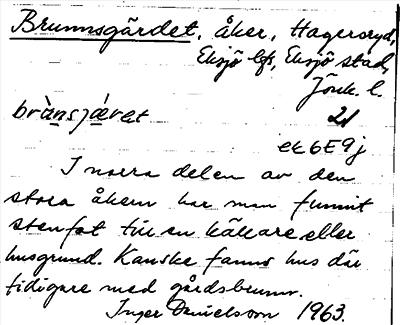 Brunnsgärdet, åker, Hagersryd,
Eksjö lfs, Eksjö stad,
Jönk. l.
brànsjǽrət 21
ek 6E9j
I norra delen av den
stora åkern har man funnit
stenfot till en källare eller
husgrund. Kanske fanns hus där
tidigare med gårdsbrunn.
Inger Danielsson 1963.